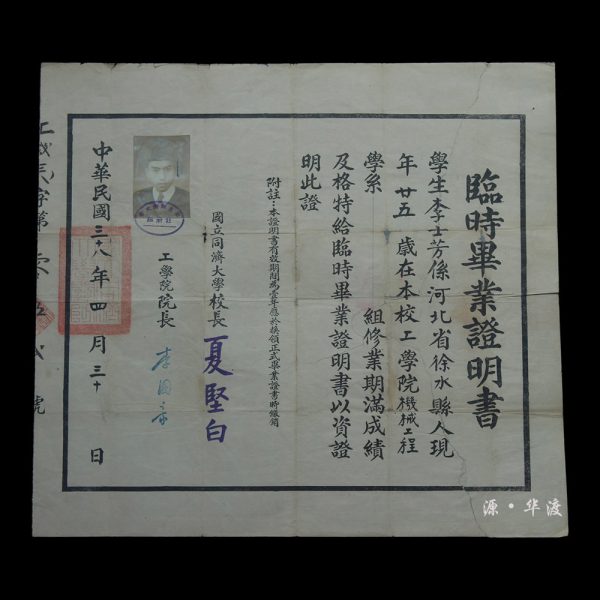 臨時畢業證明書
學生李士芳係河北省徐水縣人現
年廿五歲在本校工學院機械工程
學系 組修業期滿成績
及格特給臨時畢業證明書以資證
明此證
附註：本證明書有效期間為壹年應於換領正式畢業證書時繳銷
國立同濟大學校長 夏堅白
工學院院長 李國豪
中華民國三十八年四月三十日
字第 號
源·华渡